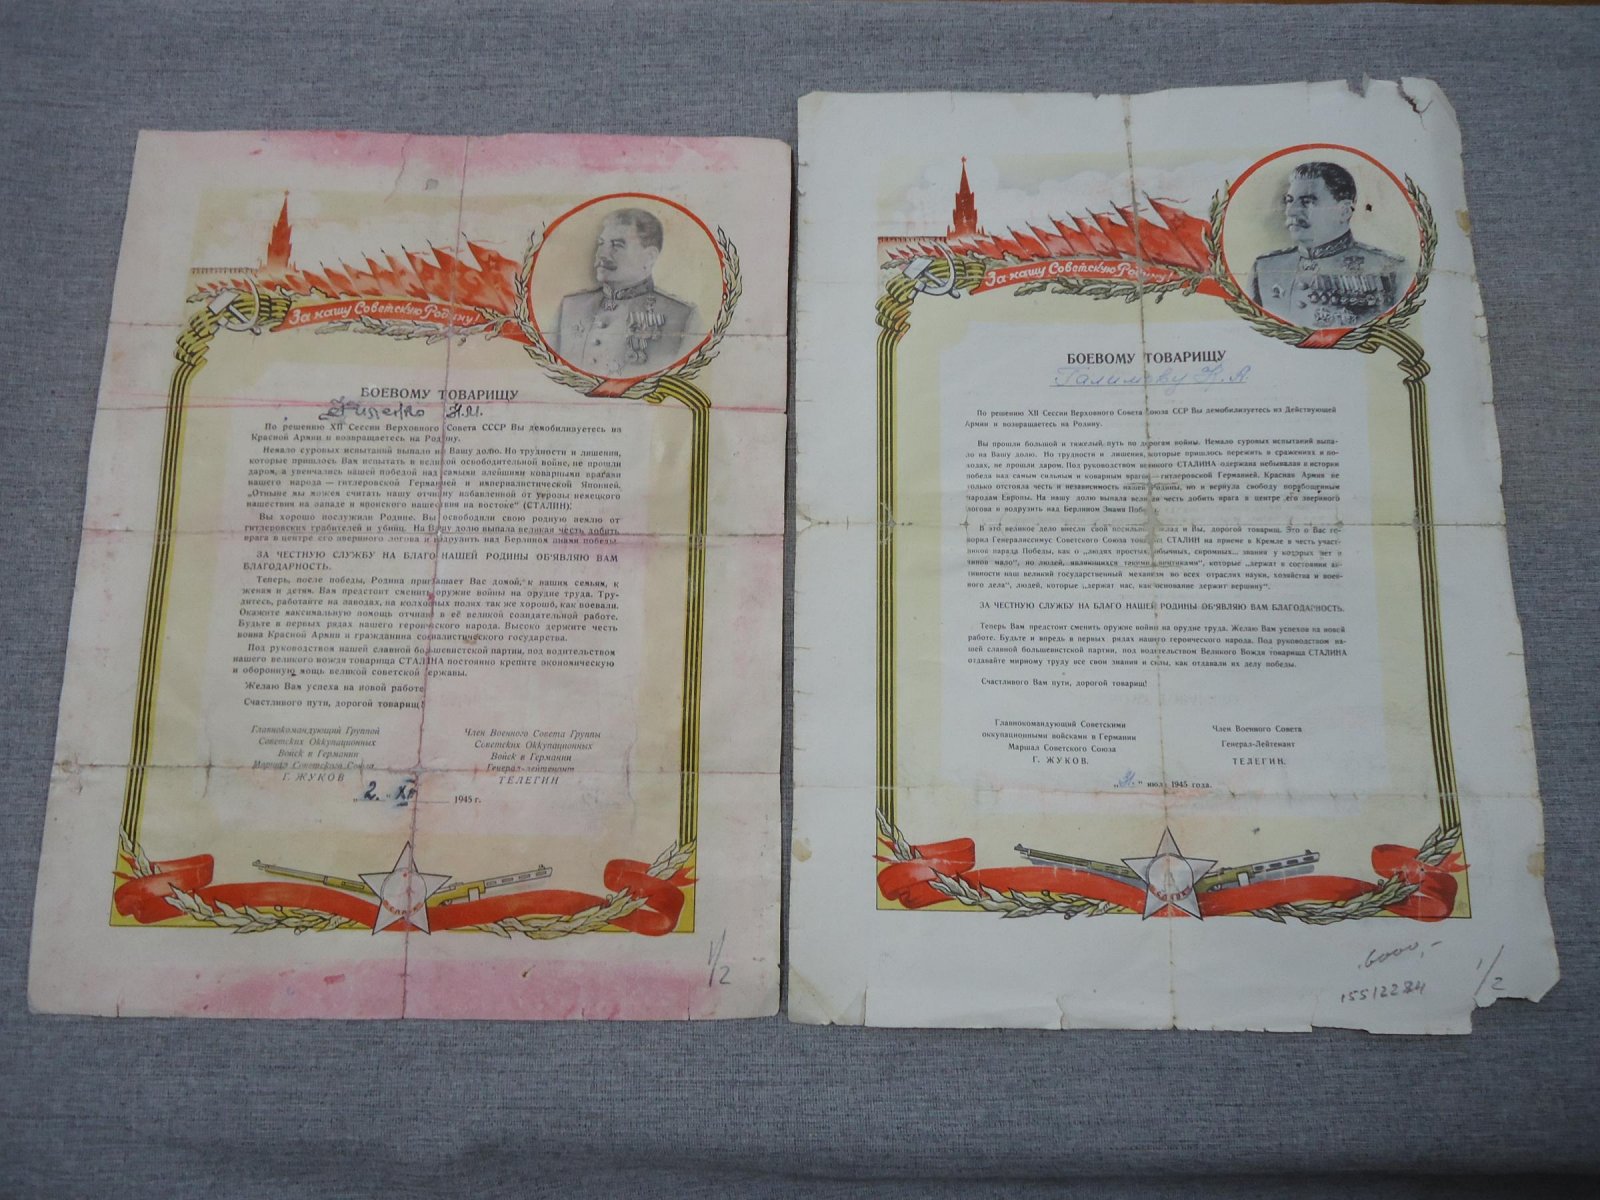 За нашу Советскую Родину!
БОЕВОМУ ТОВАРИЩУ
Н.И.
По решению XII Сессии Верховного Совета СССР Вы демобилизуетесь из
Красной Армии и возвращаетесь на Родину.
Немало суровых испытаний выпало на Вашу долю. Но трудности и лишения,
которые пришлось Вам испытать в великой освободительной войне, не прошли
даром, а увенчались нашей победой над самыми злейшими коварными врагами
нашего народа — гитлеровской Германией и империалистической Японией.
„Отныне мы можем считать нашу отчизну избавленной от угрозы немецкого
нашествия на западе и японского нашествия на востоке“ (СТАЛИН).
Вы хорошо послужили Родине. Вы освободили свою родную землю от
гитлеровских грабителей и убийц. На Вашу долю выпала великая честь добить
врага в центре его звериного логова и водрузить над Берлином знамя победы.
ЗА ЧЕСТНУЮ СЛУЖБУ НА БЛАГО НАШЕЙ РОДИНЫ ОБ'ЯВЛЯЮ ВАМ
БЛАГОДАРНОСТЬ.
Теперь, после победы, Родина приглашает Вас домой, к нашим семьям, к
женам и детям. Вам предстоит сменить оружие войны на орудие труда. Тру-
дитесь, работайте на заводах, на колхозных полях так же хорошо, как воевали.
Окажите максимальную помощь отчизне в её великой созидательной работе.
Будьте в первых рядах нашего героического народа. Высоко держите честь
воина Красной Армии и гражданина социалистического государства.
Под руководством нашей славной большевистской партии, под водительством
нашего великого вождя товарища СТАЛИНА постоянно крепите экономическую
и оборонную мощь великой советской державы.
Желаю Вам успеха на новой работе.
Счастливого пути, дорогой товарищ!
Главнокомандующий Группой
Советских Оккупационных
Войск в Германии
Маршал Советского Союза
Г. ЖУКОВ
Член Военного Совета Группы
Советских Оккупационных
Войск в Германии
Генерал-лейтенант
ТЕЛЕГИН
„2.“ XII 1945 г.
1/2
За нашу Советскую Родину!
БОЕВОМУ ТОВАРИЩУ
Галимову К. А.
По решению XII Сессии Верховного Совета Союза ССР Вы демобилизуетесь из Действующей
Армии и возвращаетесь на Родину.
Вы прошли большой и тяжелый путь по дорогам войны. Немало суровых испытаний выпа-
ло на Вашу долю. Но трудности и лишения, которые пришлось пережить в сражениях и по-
ходах, не прошли даром. Под руководством великого СТАЛИНА одержана небывалая в истории
победа над самым сильным и коварным врагом—гитлеровской Германией. Красная Армия не
только отстояла честь и независимость нашей Родины, но и вернула свободу порабощенным
народам Европы. На нашу долю выпала великая честь добить врага в центре его звериного
логова и водрузить над Берлином Знамя Победы.
В это великое дело внесли свой посильный вклад и Вы, дорогой товарищ. Это о Вас го-
ворил Генералиссимус Советского Союза товарищ СТАЛИН на приеме в Кремле в честь участ-
ников парада Победы, как о „людях простых, обычных, скромных... звания у которых нет и
чинов мало“, но людей, являющихся такими „винтиками“, которые „держат в состоянии ак-
тивности наш великий государственный механизм во всех отраслях науки, хозяйства и воен-
ного дела“, людей, которые „держат нас, как основание держит вершину“.
ЗА ЧЕСТНУЮ СЛУЖБУ НА БЛАГО НАШЕЙ РОДИНЫ ОБ'ЯВЛЯЮ ВАМ БЛАГОДАРНОСТЬ.
Теперь Вам предстоит сменить оружие войны на орудие труда. Желаю Вам успехов на новой
работе. Будьте и впредь в первых рядах нашего героического народа. Под руководством на-
шей славной большевистской партии, под водительством Великого Вождя товарища СТАЛИНА
отдавайте мирному труду все свои знания и силы, как отдавали их делу победы.
Счастливого Вам пути, дорогой товарищ!
Главнокомандующий Советскими
оккупационными войсками в Германии
Маршал Советского Союза
Г. ЖУКОВ.
Член Военного Совета
Генерал-Лейтенант
ТЕЛЕГИН.
июля 1945 года.
6000,-
15512284
1/2